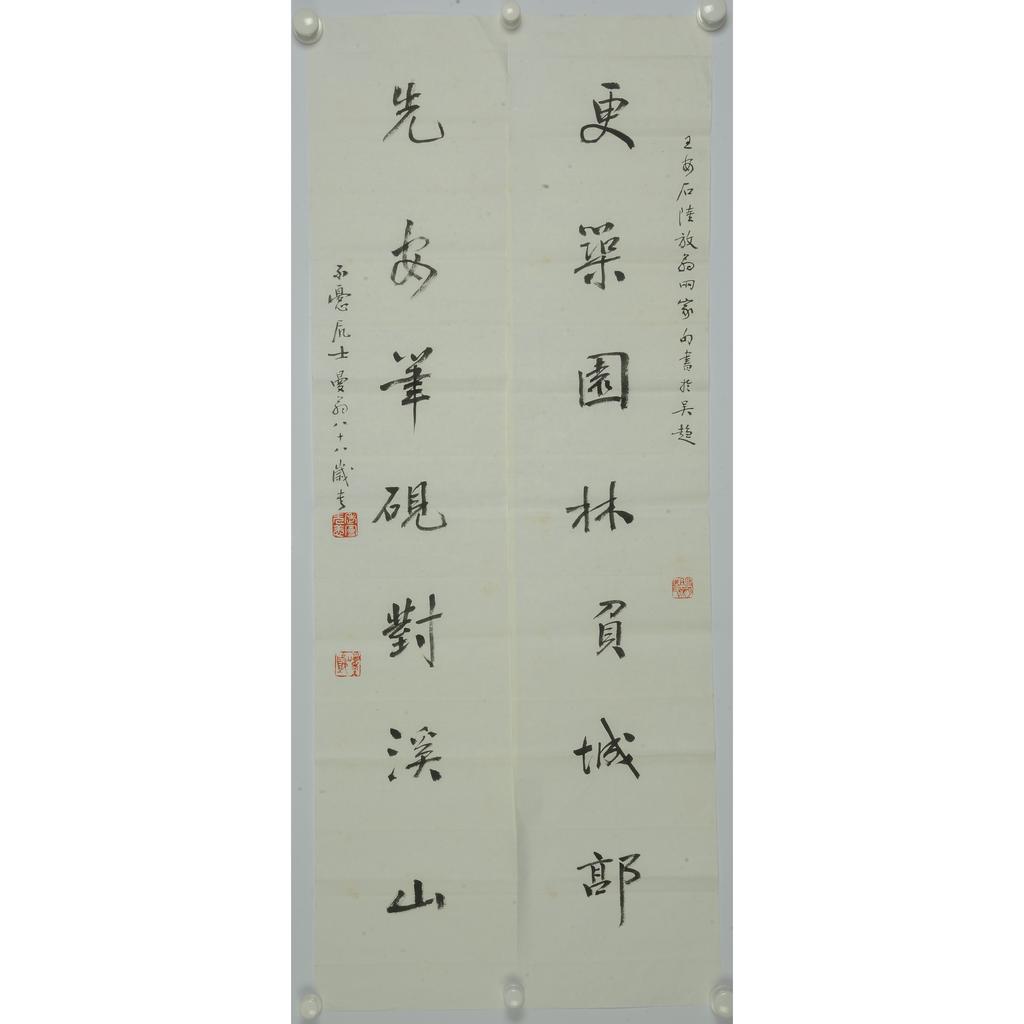 王安石陸放翁兩家句書於吳趨
更築園林負城郭
先安筆硯對溪山
不憂居士曼翁八十八歲書